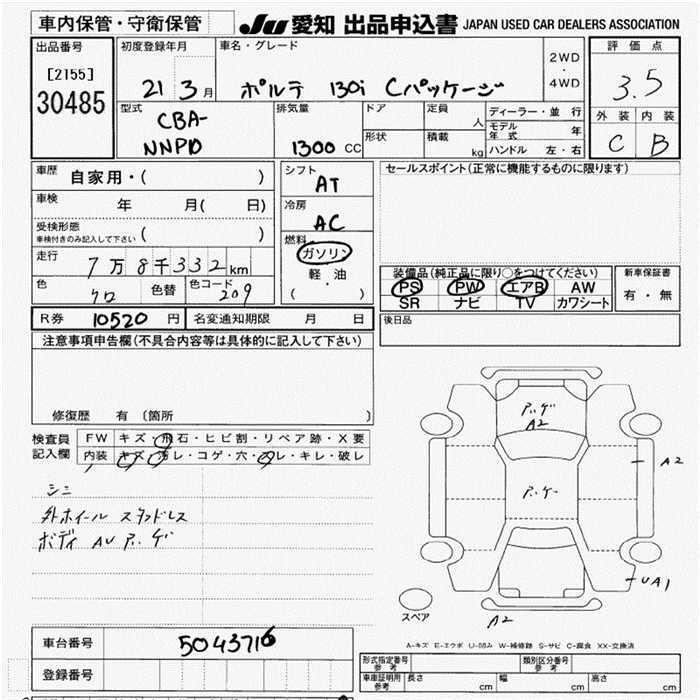 車内保管・守衛保管
JU 愛知 出品申込書 JAPAN USED CAR DEALERS ASSOCIATION
出品番号
[2155]
30485
初度登録年月
21 3月
車名・グレード
ポルテ 130i Cパッケージ
2WD
・
4WD
評価点
3.5
外装 内装
C B
型式
CBA-
NNP10
排気量
1300 CC
ドア
形状
定員 人
積載 kg
ディーラー・並行
モデル年式 年
ハンドル 左・右
車歴 自家用・( )
車検 年 月( 日)
受検形態
車検付きのみ記入して下さい ( )
走行 7万8千332km
色 クロ 色替 色コード 209
シフト
AT
冷房
AC
燃料
ガソリン
軽・油
( )
セールスポイント(正常に機能するものに限ります)
装備品(純正品に限り○をつけてください)
PS PW エアB AW
SR ナビ TV カワシート
新車保証書
有・無
後日品
R券 10520 円 名変通知期限 月 日
注意事項申告欄(不具合内容等は具体的に記入して下さい)
修復歴 有〔箇所 〕
検査員
記入欄
FW キズ・飛石・ヒビ割・リペア跡・X要
内装 キズ・汚レ・コゲ・穴・スレ・キレ・破レ
シミ
外ホイール スタッドレス
ボディ AU アッゲ
アッゲ
A2
アッゲー
A2
UA1
A2
スペア
A-キズ E-エクボ U-凹み W-補修跡 S-サビ C-腐食 XX-交換済
車台番号 5043716
登録番号
形式指定番号
参考
類別区分番号
参考
車庫証明用
参考
長さ cm 幅 cm 高さ cm